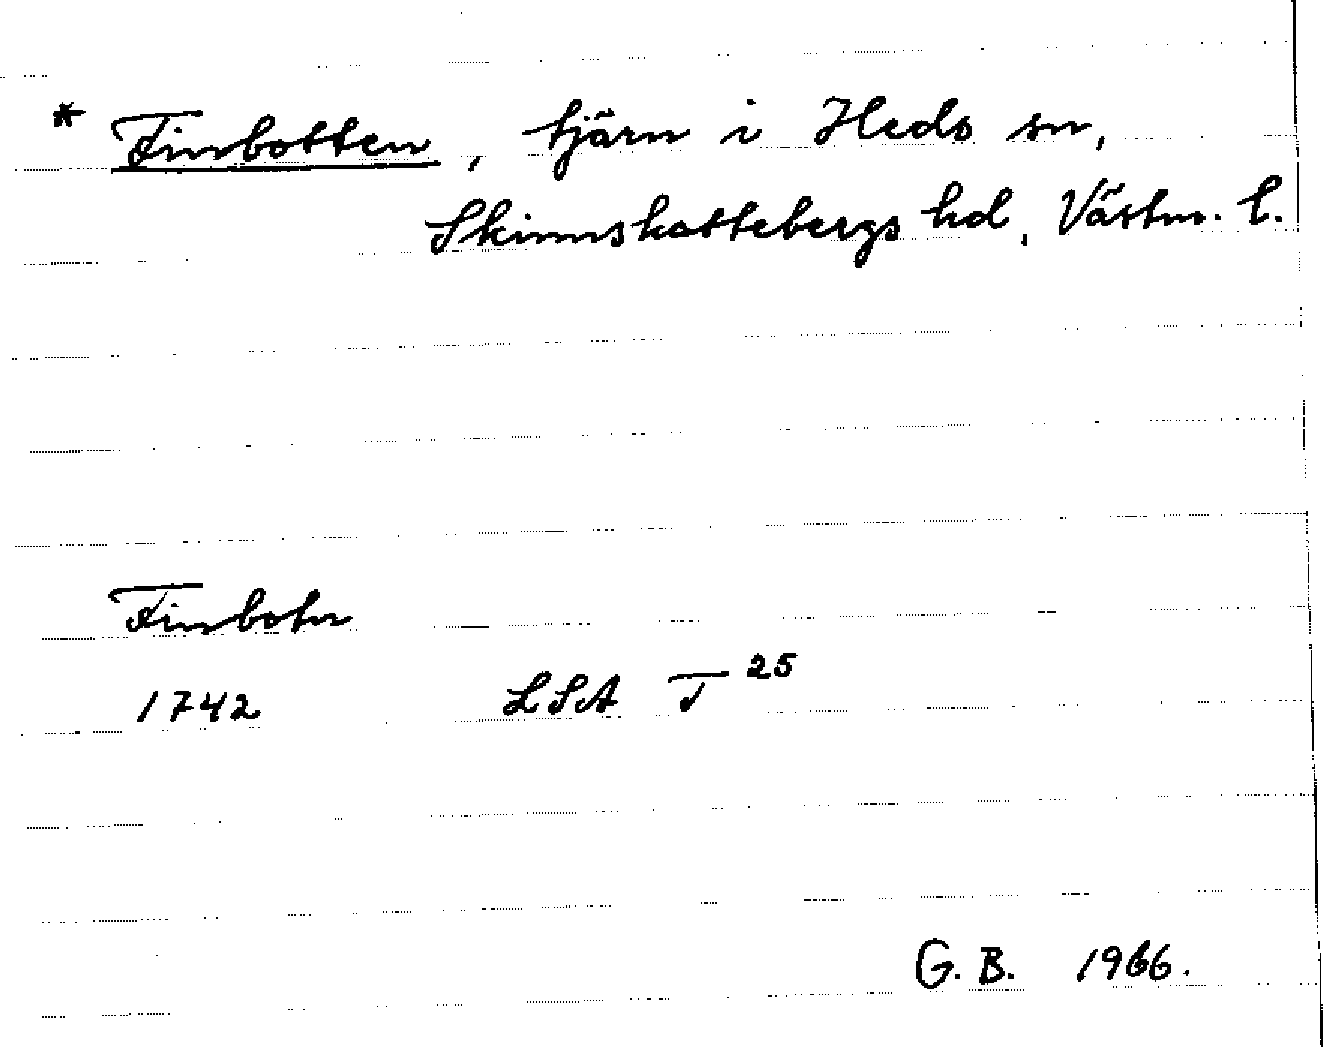 * Finbotten, tjärn i Heds sn,
Skinnskattebergs hd, Västm. l.
Finbotn
1742 LSA T 25
G. B. 1966.